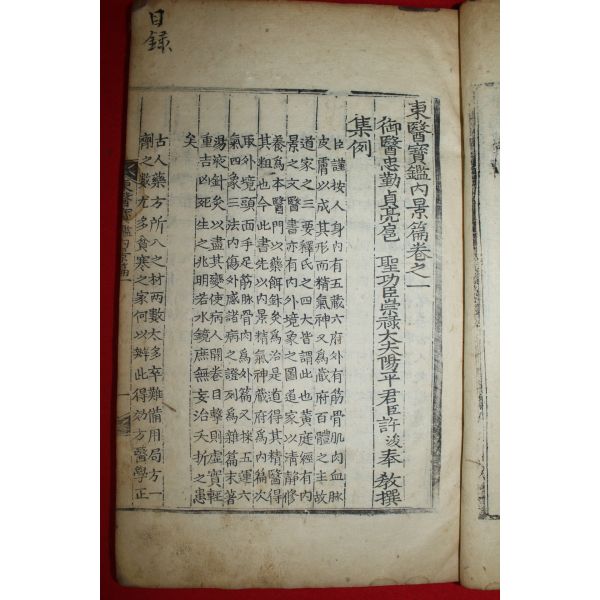 目録
東醫寶鑑內景篇卷之一
御醫忠勤貞亮扈 聖功臣崇祿大夫陽平君臣許浚奉 教撰
集例
臣謹按人身內有五藏六府外有筋骨肌肉血脉
皮膚以成其形而精氣神又爲藏府百體之主故
道家之三要釋氏之四大皆謂此也黃庭經有內
景之文醫書亦有內外境象之圖道家以淸靜修
養爲本醫門以藥餌針灸爲治是道得其精醫得
其粗也今此書先以內景精氣神藏府爲內篇次
取外境頭面手足筋脉骨肉爲外篇又採五運六
氣四象三法內傷外感諸病之證列爲雜篇末著
湯液針灸以盡其變使病人開卷目擊則虛實輕
重吉凶死生之兆明若水鏡庶無妄治夭折之患
矣
古人藥方所入之材兩數太多卒難備用局方一
劑之數尤多貧寒之家何以辦此得効方醫學正
東醫寶鑑內景篇一